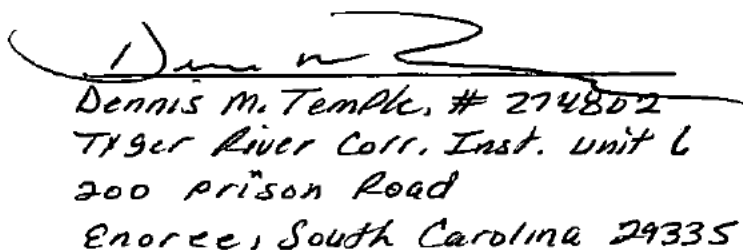 Dennis M. Temple, # 274802
Tyger River Corr. Inst. unit 6
200 prison Road
Enoree, South Carolina 29335